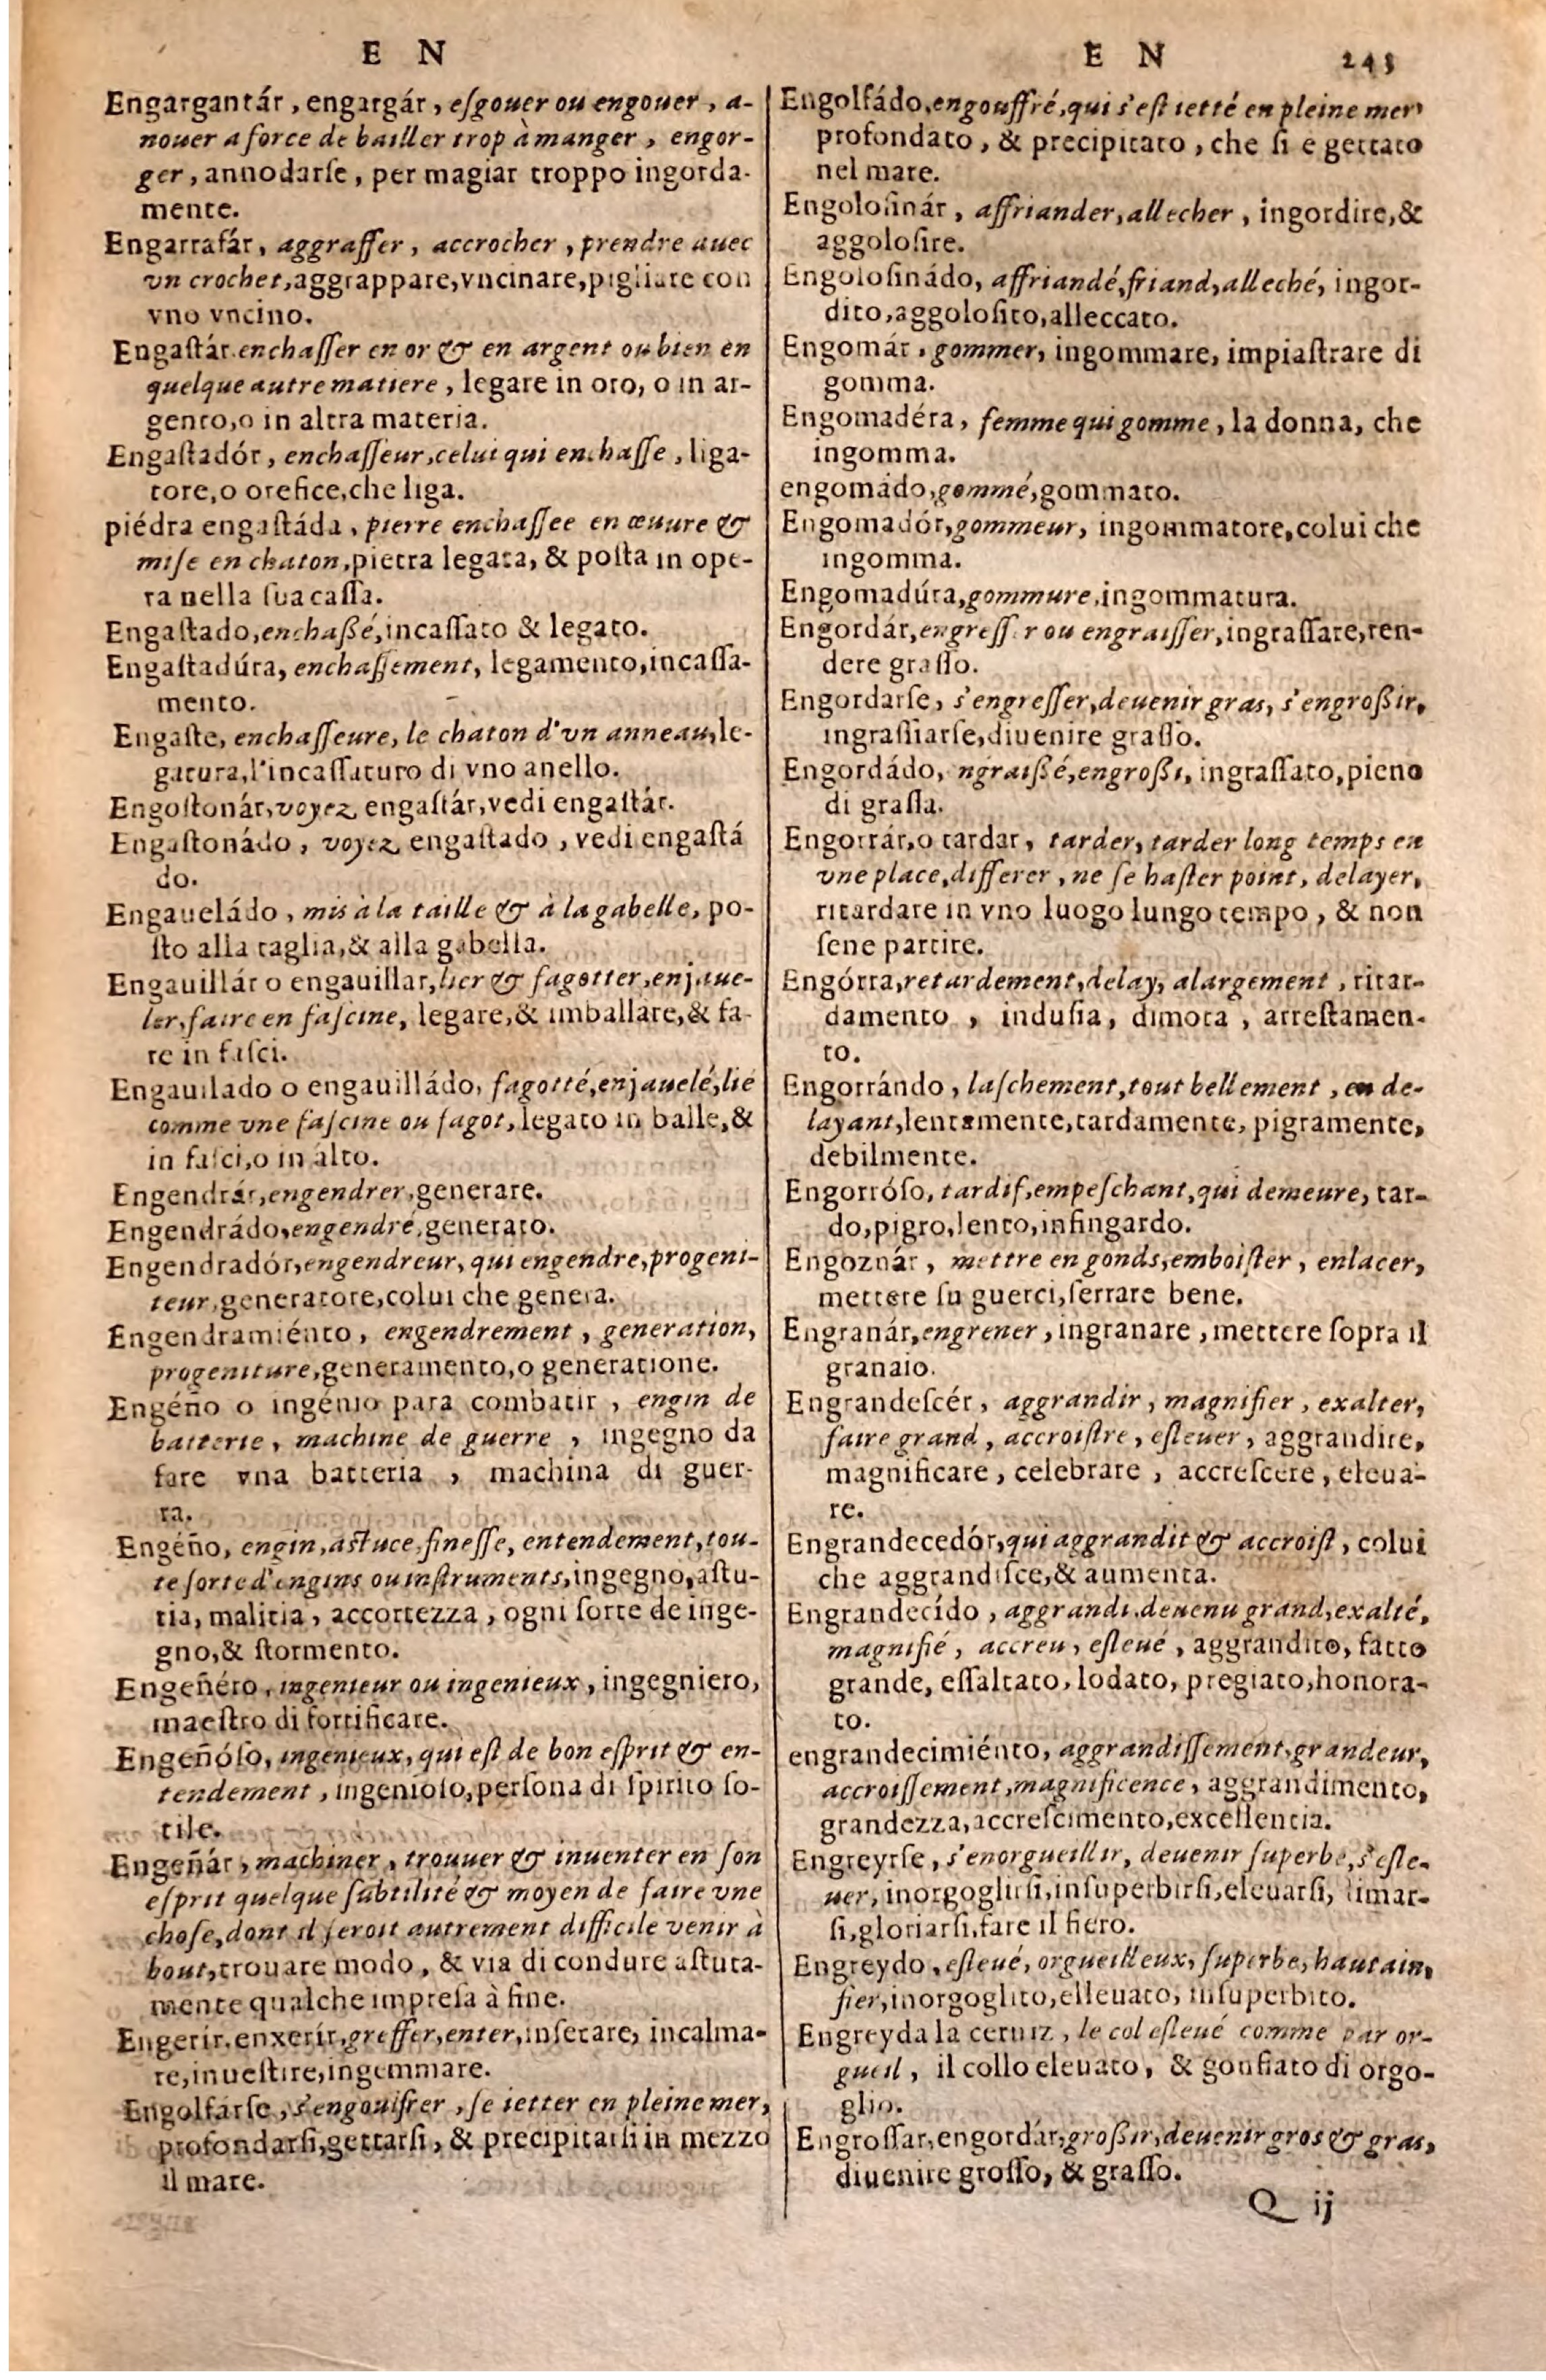 E N
Engargantár, engargár, eſgouer ou engouer, a-
nouer a force de bailler trop à manger, engor-
ger, annodarſe, per magiar troppo ingorda-
mente.
Engarrafár, aggraffer, accrocher, prendre auec
vn crochet, aggrappare, vncinare, pigliare con
vno vncino.
Engaſtár, enchaſſer en or & en argent ou bien en
quelque autre matiere, legare in oro, o in ar-
gento, o in altra materia.
Engaſtadór, enchaſſeur, celui qui enchaſſe, liga-
tore, o orefice, che liga.
piédra engaſtáda, pierre enchaſſee en œuure &
miſe en chaton, pietra legata, & poſta in ope-
ra nella ſua caſſa.
Engaſtado, enchaßé, incaſſato & legato.
Engaſtadúra, enchaſſement, legamento, incaſſa-
mento.
Engaſte, enchaſſeure, le chaton d'vn anneau, le-
gatura, l'incaſſaturo di vno anello.
Engoſtonár, voyez engaſtár, vedi engaſtár.
Engaſtonádo, voyez engaſtado, vedi engaſtá
do.
Engaueládo, mis à la taille & à la gabelle, po-
ſto alla taglia, & alla gabella.
Engauillár o engauillar, lier & fagotter, enjaue-
ler, faire en faſcine, legare, & imballare, & fa-
re in faſci.
Engauilado o engauilládo, fagotté, enjauelé, lié
comme vne faſcine ou fagot, legato in balle, &
in faſci, o in alto.
Engendrár, engendrer, generare.
Engendrádo, engendré, generato.
Engendradór, engendreur, qui engendre, progeni-
teur, generatore, colui che genera.
Engendramiénto, engendrement, generation,
progeniture, generamento, o generatione.
Engéño o ingénio para combatir, engin de
batterie, machine de guerre, ingegno da
fare vna batteria, machina di guer-
ra.
Engéño, engin, aſtuce, fineſſe, entendement, tou-
te ſorte d'engins ou inſtruments, ingegno, aſtu-
tia, malitia, accortezza, ogni ſorte de inge-
gno, & ſtormento.
Engeñéro, ingenieur ou ingenieux, ingegniero,
maeſtro di fortificare.
Engeñóſo, ingenieux, qui eſt de bon eſprit & en-
tendement, ingenioſo, perſona di ſpirito ſo-
tile.
Engeñár, machiner, trouuer & inuenter en ſon
eſprit quelque ſubtilité & moyen de faire vne
choſe, dont il ſeroit autrement difficile venir à
bout, trouare modo, & via di condure aſtuta-
mente qualche impreſa à fine.
Engerír, enxerír, greffer, enter, inſetare, incalma-
re, inueſtire, ingemmare.
Engolfárſe, s'engouffrer, ſe ietter en pleine mer,
profondarſi, gettarſi, & precipitarſi in mezzo
il mare.
E N 245
Engolfádo, engouffré, qui s'eſt ietté en pleine mer,
profondato, & precipitato, che ſi e gettato
nel mare.
Engoloſinár, affriander, allecher, ingordire, &
aggoloſire.
Engoloſinádo, affriandé, friand, alleché, ingor-
dito, aggoloſito, alleccato.
Engomár, gommer, ingommare, impiaſtrare di
gomma.
Engomadéra, femme qui gomme, la donna, che
ingomma.
engomádo, gommé, gommato.
Engomadór, gommeur, ingommatore, colui che
ingomma.
Engomadúra, gommure, ingommatura.
Engordár, engreſſer ou engraiſſer, ingraſſare, ren-
dere graſſo.
Engordarſe, s'engreſſer, deuenir gras, s'engroßir,
ingraſſiarſe, diuenire graſſo.
Engordádo, ngraißé, engroßi, ingraſſato, pieno
di graſſa.
Engorrár, o tardar, tarder, tarder long temps en
vne place, differer, ne ſe haſter point, delayer,
ritardare in vno luogo lungo tempo, & non
ſene partire.
Engórra, retardement, delay, alargement, ritar-
damento, induſia, dimora, arreſtamen-
to.
Engorrándo, laſchement, tout bellement, en de-
layant, lentamente, tardamente, pigramente,
debilmente.
Engorróſo, tardif, empeſchant, qui demeure, tar-
do, pigro, lento, infingardo.
Engoznár, mettre en gonds, emboiſter, enlacer,
mettere ſu guerci, ſerrare bene.
Engranár, engrener, ingranare, mettere ſopra il
granaio.
Engrandeſcér, aggrandir, magnifier, exalter,
faire grand, accroiſtre, eſleuer, aggrandire,
magnificare, celebrare, accreſcere, eleua-
re.
Engrandecedór, qui aggrandit & accroiſt, colui
che aggrandiſce, & aumenta.
Engrandecído, aggrandi, deuenu grand, exalté,
magnifié, accreu, eſleué, aggrandito, fatto
grande, eſſaltato, lodato, pregiato, honora-
to.
engrandecimiénto, aggrandiſſement, grandeur,
accroiſſement, magnificence, aggrandimento,
grandezza, accreſcimento, excellentia.
Engreyrſe, s'enorgueillir, deuenir ſuperbe, s'eſle-
uer, inorgoglirſi, inſuperbirſi, eleuarſi, ſtimar-
ſi, gloriarſi, fare il fiero.
Engreydo, eſleué, orgueilleux, ſuperbe, hautain,
fier, inorgoglito, elleuato, inſuperbito.
Engreyda la ceruiz, le col eſleué comme par or-
gueil, il collo eleuato, & gonfiato di orgo-
glio.
Engroſſar, engordár, großir, deuenir gros & gras,
diuenire groſſo, & graſſo.
Q ij